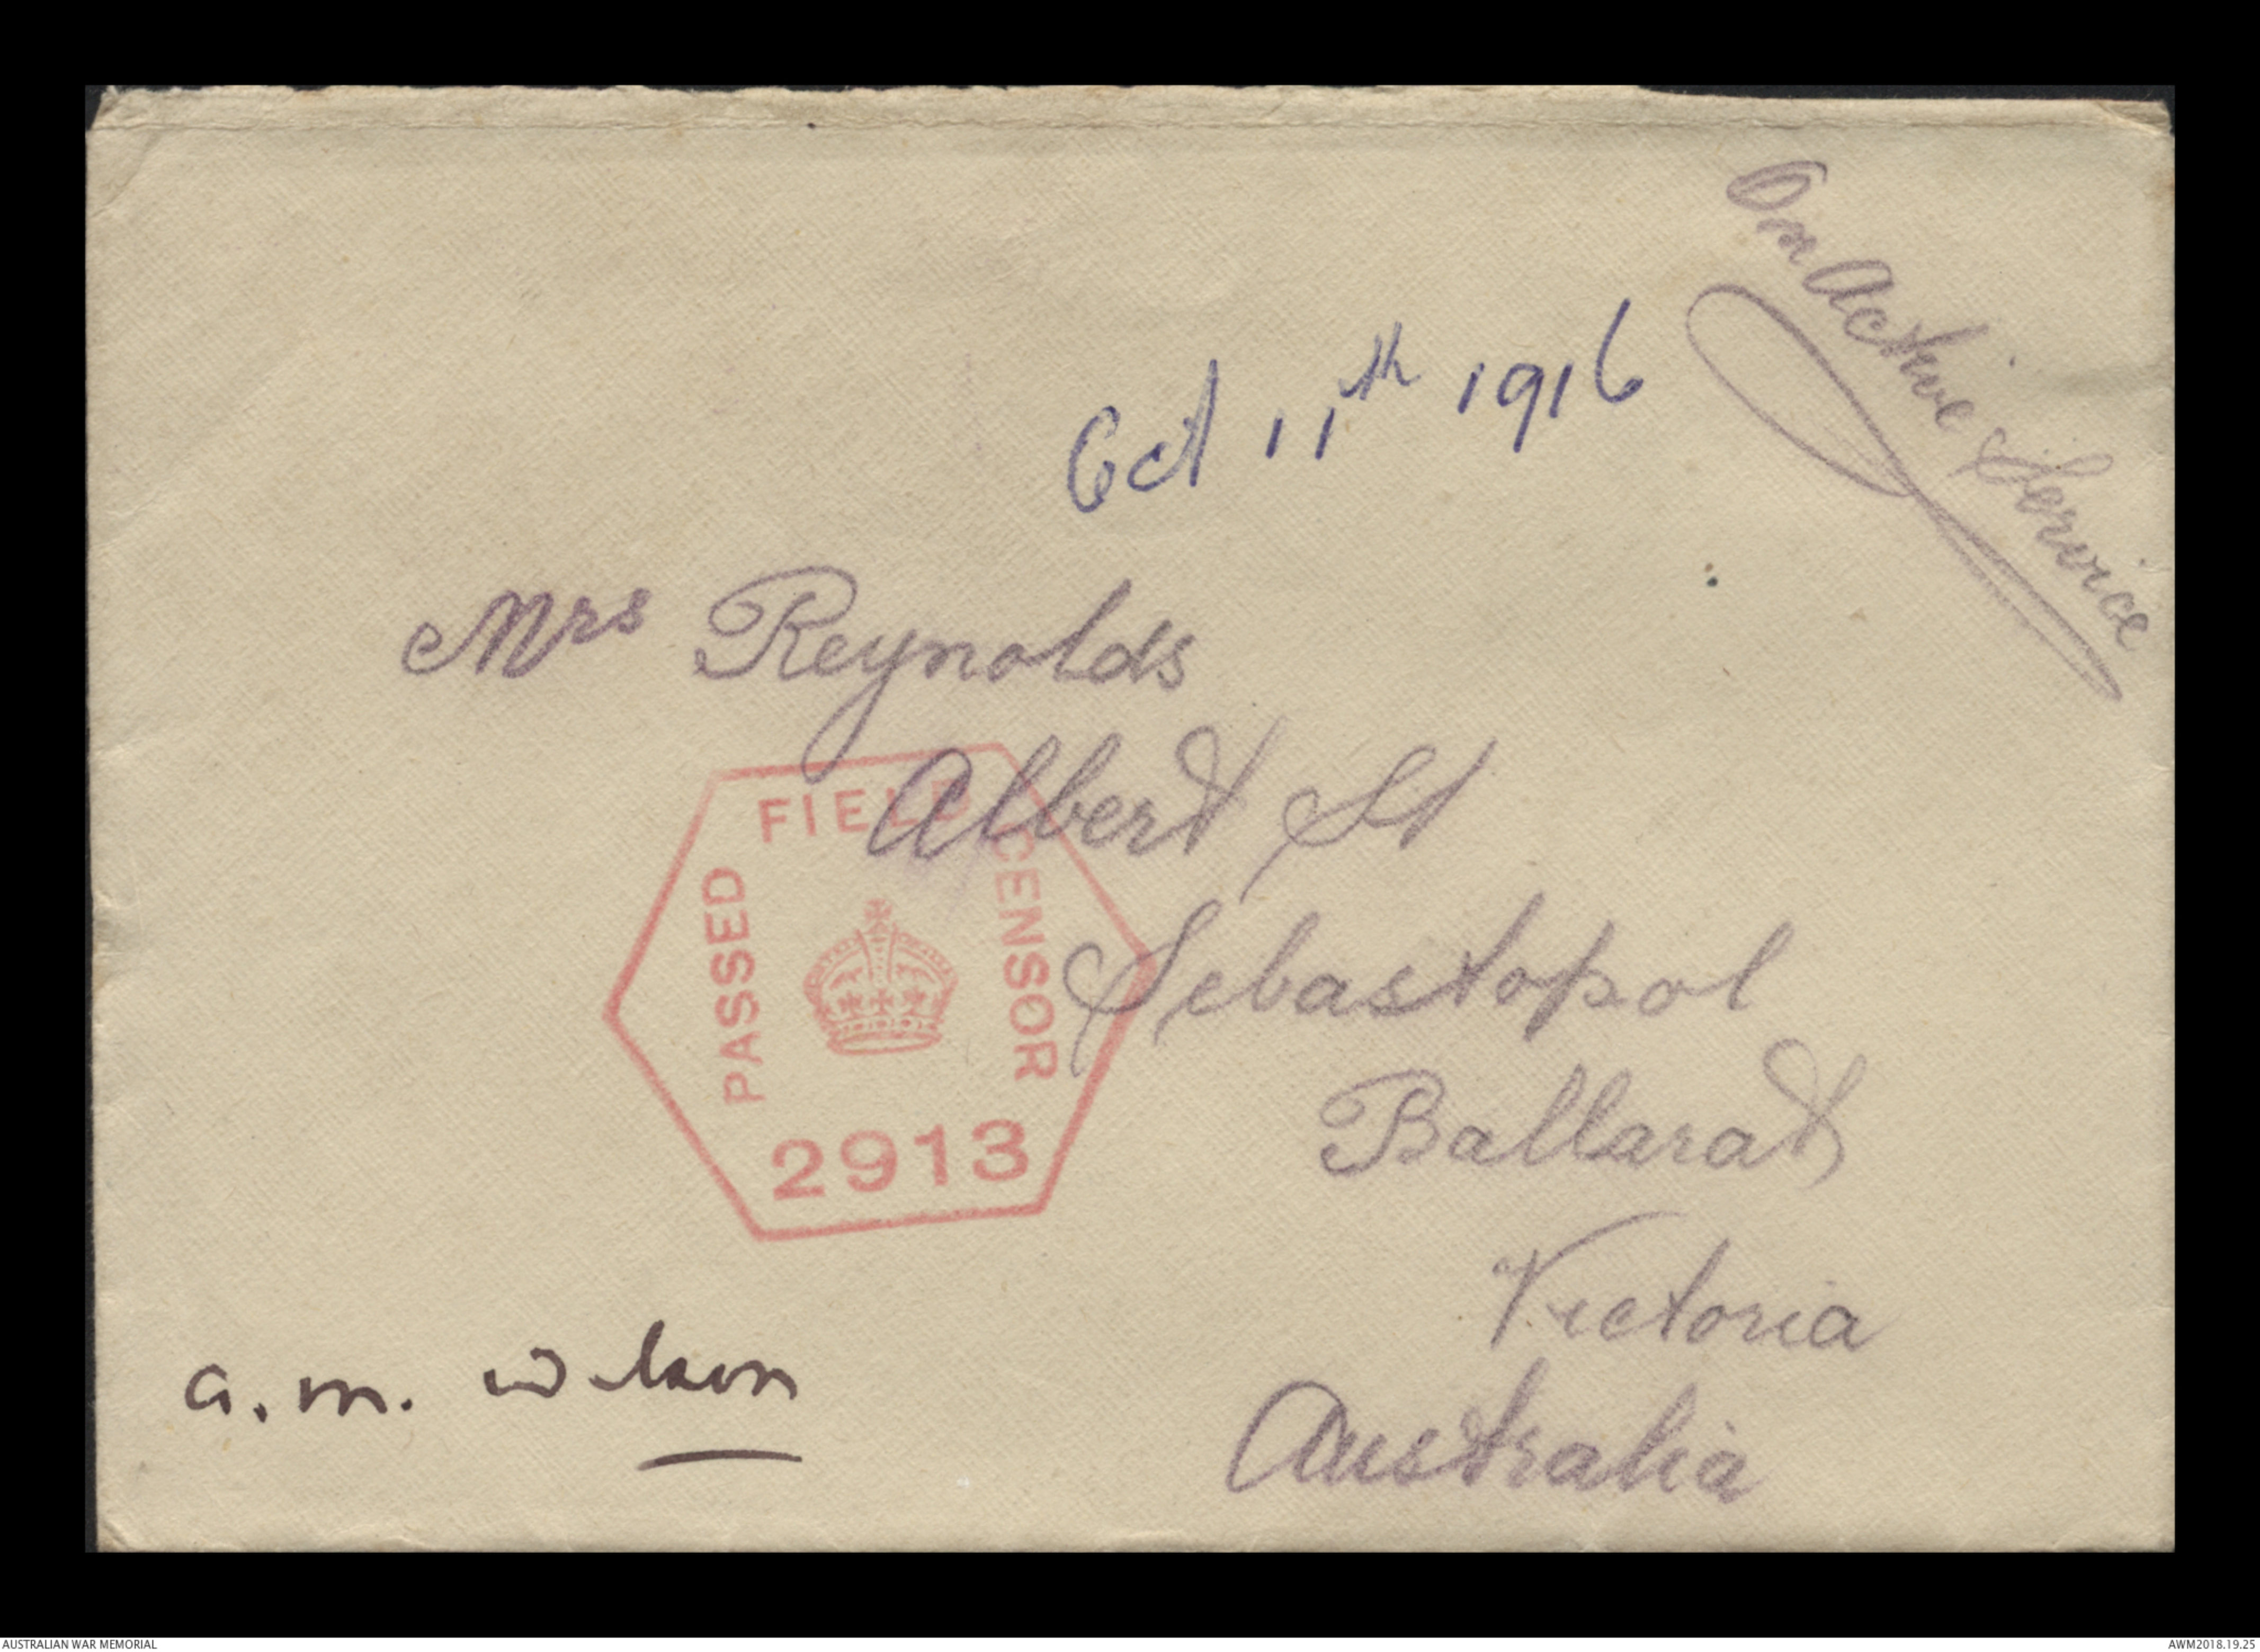 On Active Service
Oct 11th 1916
Mrs Reynolds
Albert St
Sebastopol
Ballarat
Victoria
Australia
PASSED FIELD CENSOR
2913
a.m. Wilson
AUSTRALIAN WAR MEMORIAL
AWM2018.19.25